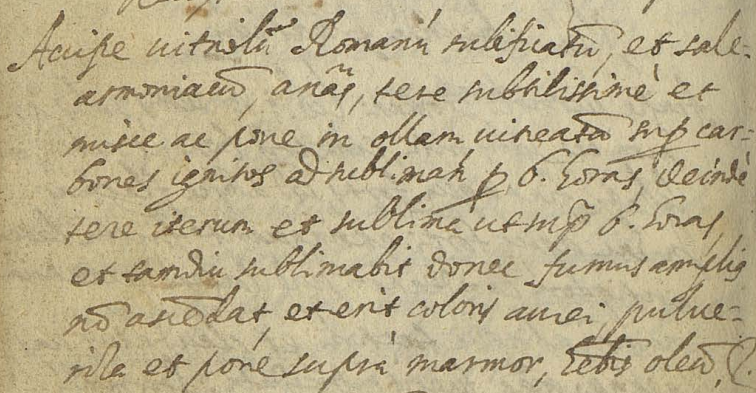 Accipe uitriolũ Romanũ rubificatũ, et sale-
armoniacũ, anãs, tere subtilissimè et
misce ac pone in ollam uitreatã sup̱ car-
bones ignitos ad sublimañ p̱ 6. horas, deindè
tere iterum et sublima ut sup̃ 6. horas,
et tamdiu sublimabis donec fumus amplig
nõ ascẽdat, et erit coloris aurei, pulue-
riza et pone suprà marmor, hẽbis oleũ,